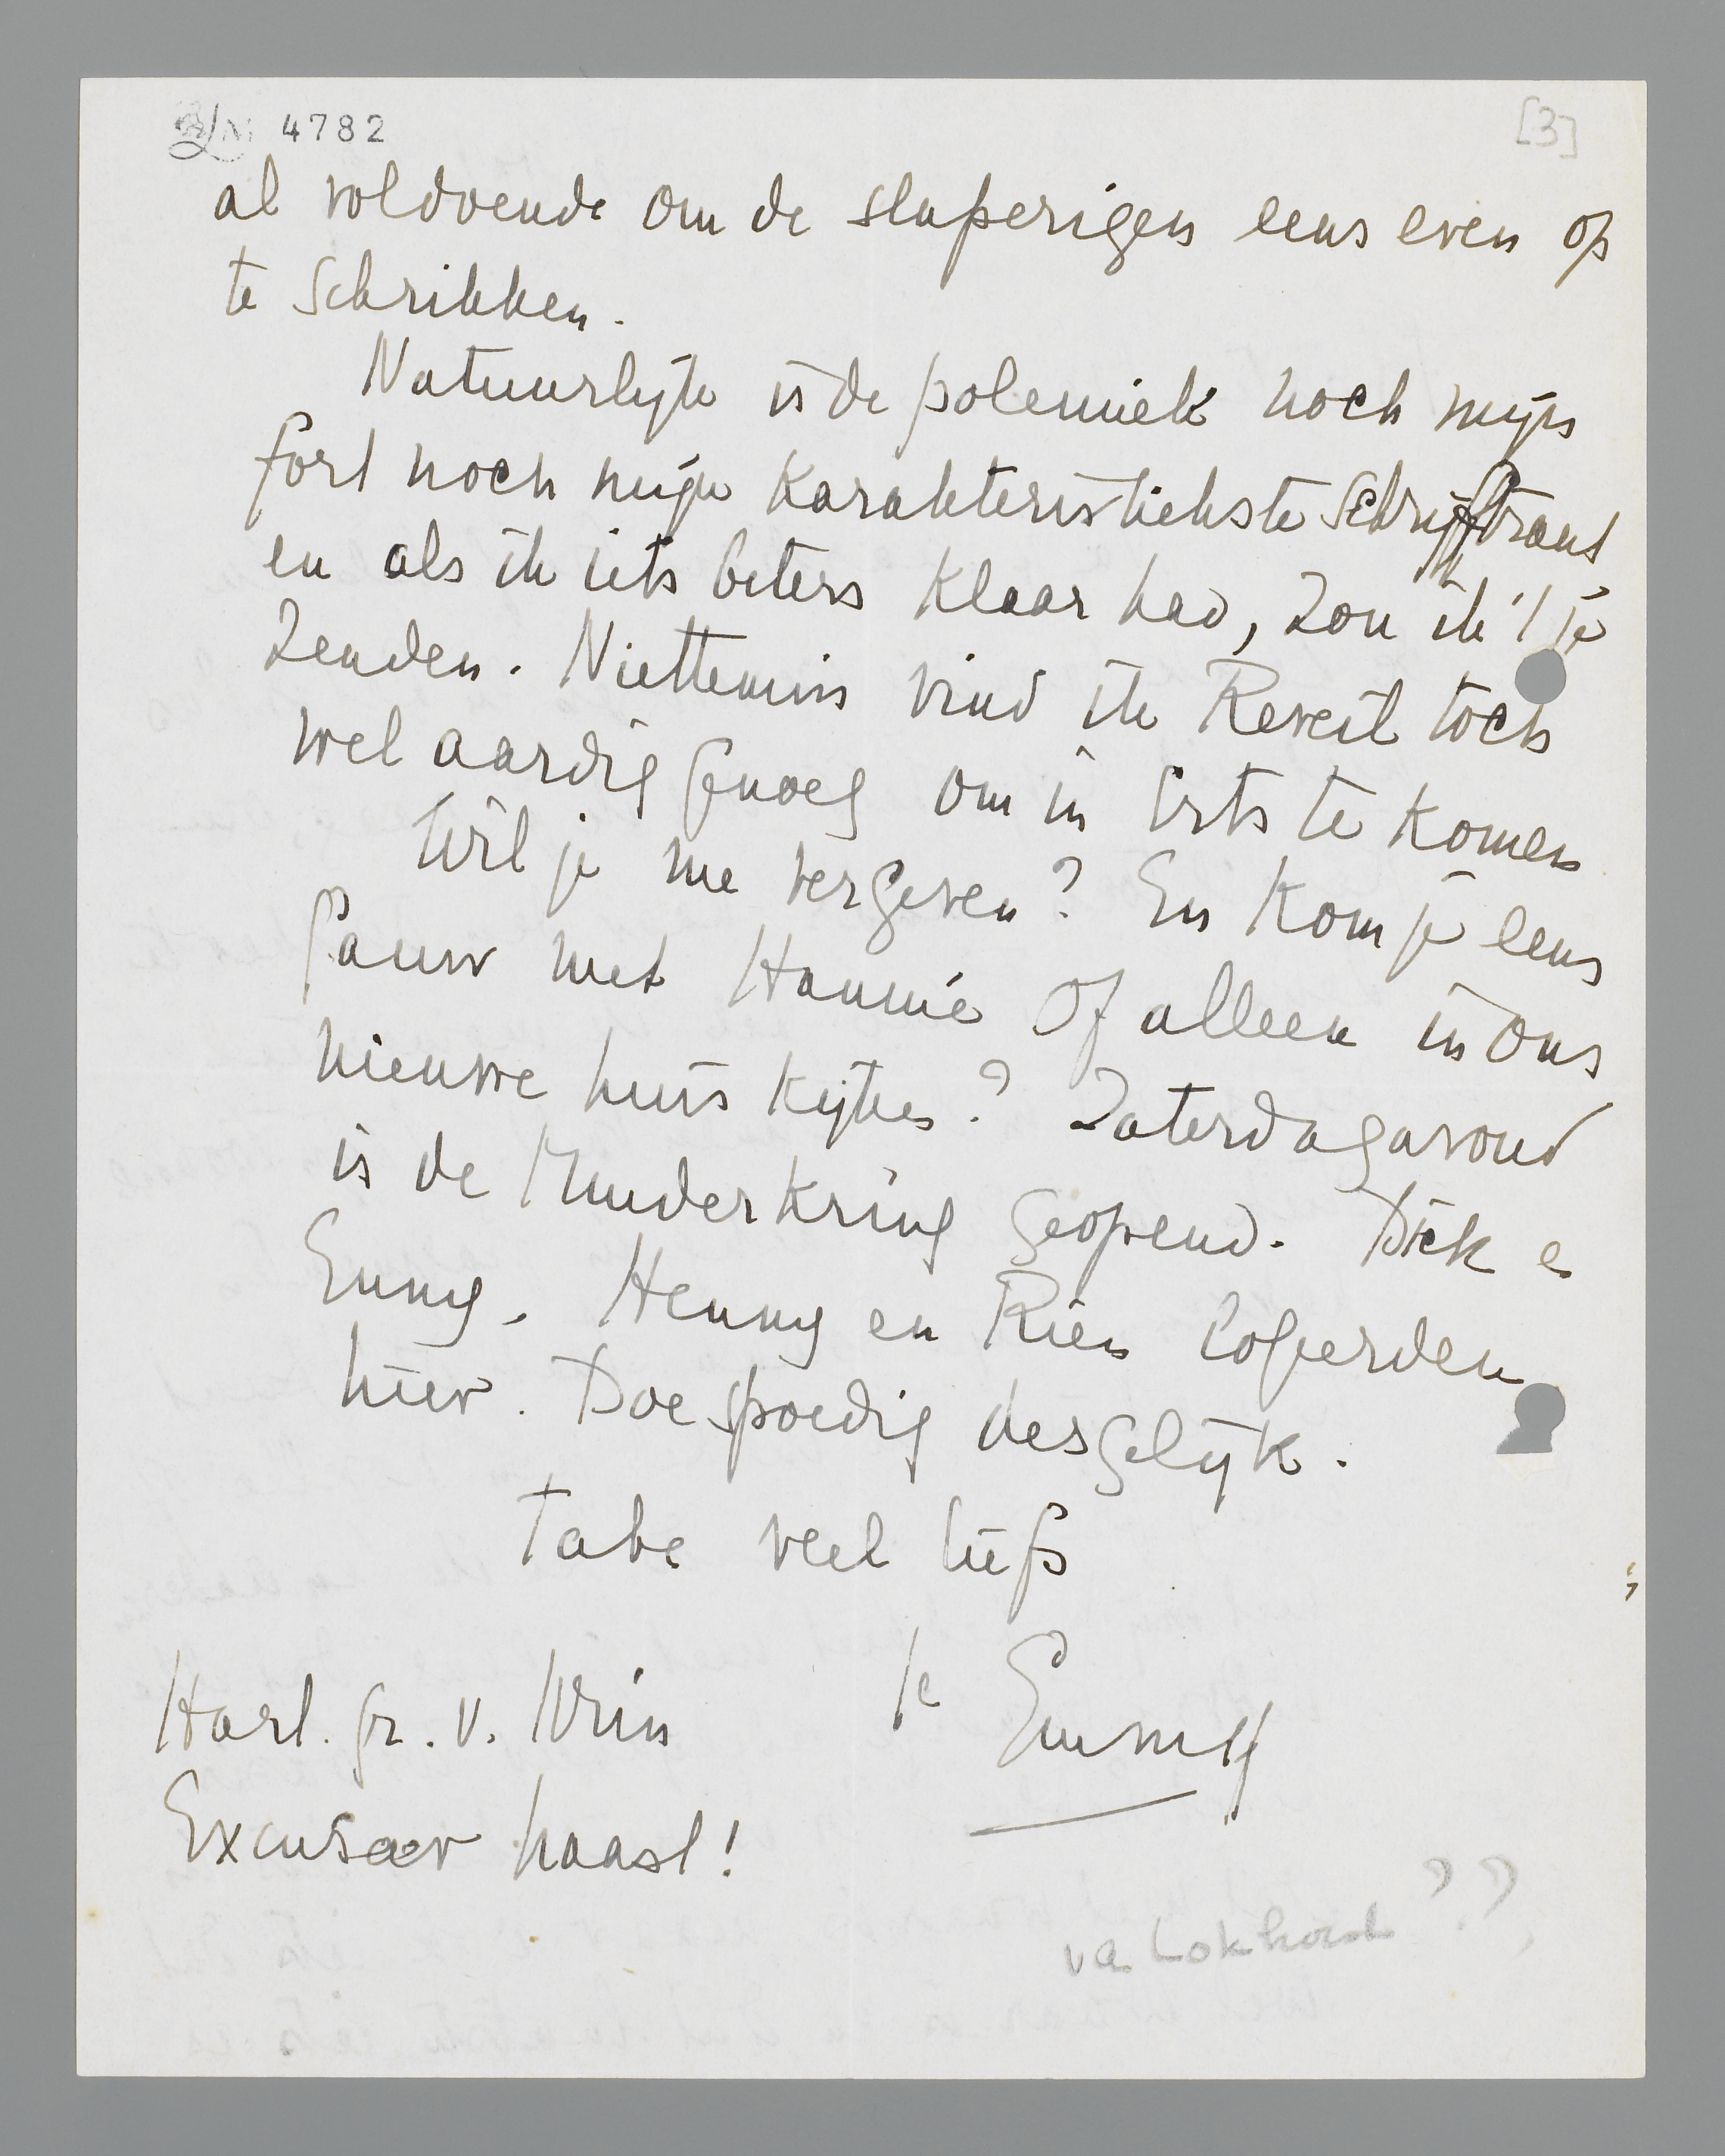 4782
[3]
al voldoende om de slaperigen eens even op
te schrikken.
Natuurlijk is de polemiek noch mijn
fort noch mijn karakteristiekste schrijftrant
en als ik iets beters klaar had, zou ik 't je
zenden. Niettemin vind ik Reveil toch
wel aardig genoeg om in Erts te komen
Wil je me vergeven? En kom je eens
gauw met Hannie of alleen in ons
nieuwe huis kijken? Zaterdagavond
is de Muiderkring geopend. Dick en
Enny, Henny en Rien logeerden
hier. Doe spoedig desgelijk.
Tabe veel liefs
Je Emmy
Hartl. gr. v. Wim
Excuseer haast!
va Lokhorst ??